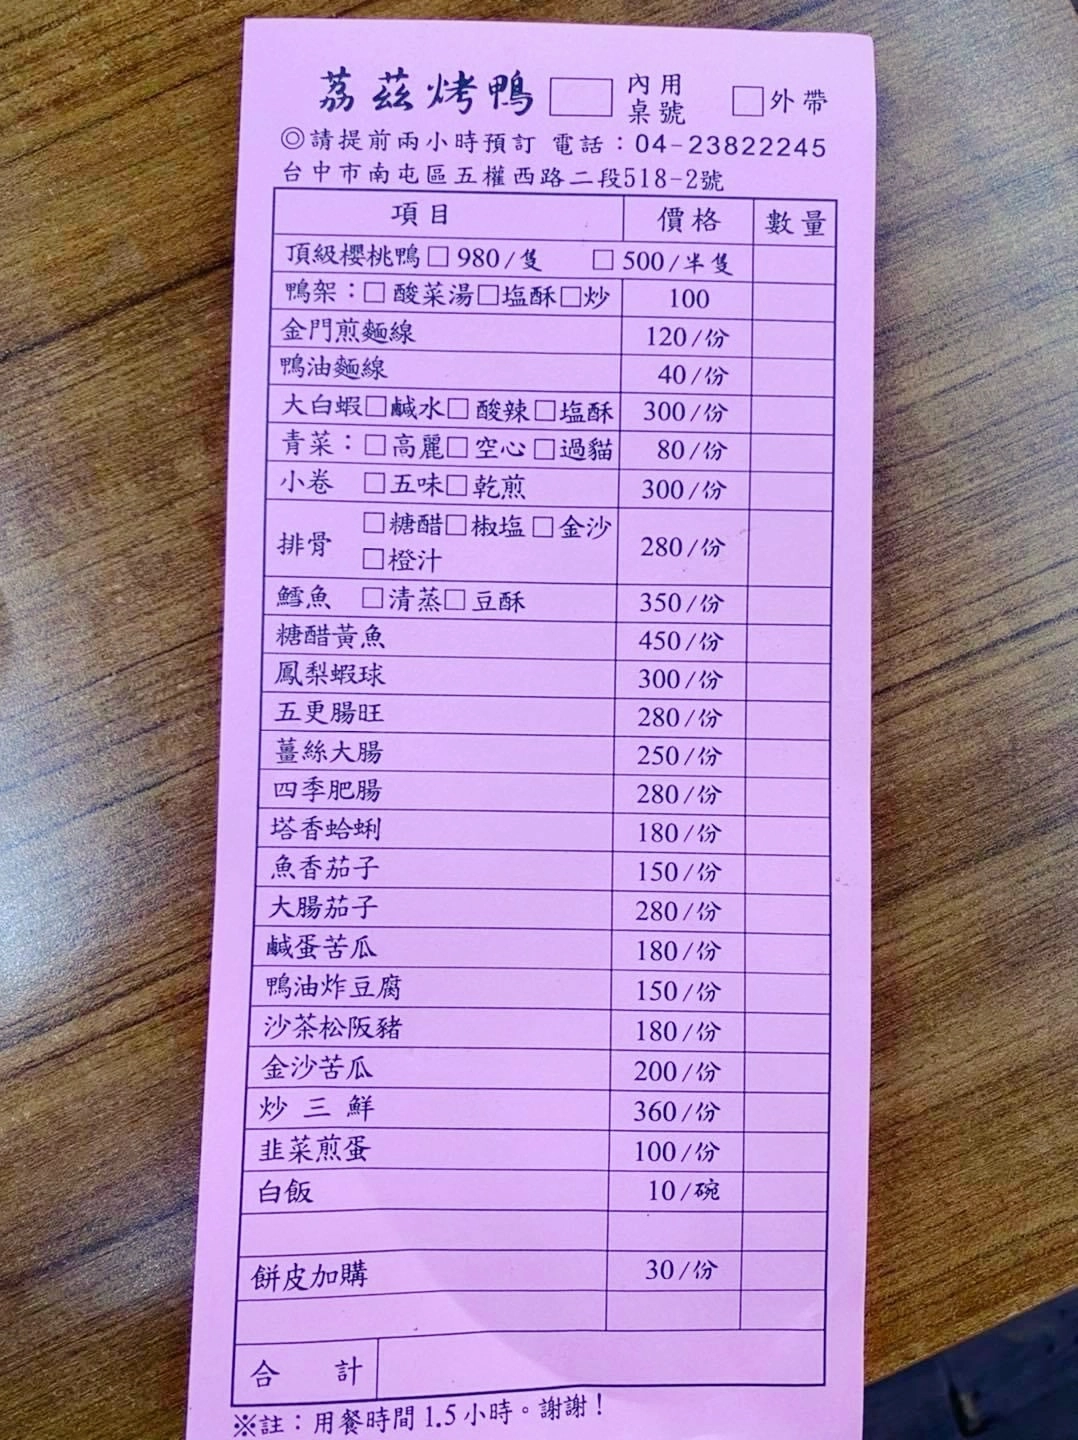 荔茲烤鴨 □ 內用桌號 □外帶
◎請提前兩小時預訂 電話：04-23822245
台中市南屯區五權西路二段518-2號
項目 價格 數量
頂級櫻桃鴨□980/隻 □500/半隻
鴨架：□酸菜湯□塩酥□炒 100
金門煎麵線 120/份
鴨油麵線 40/份
大白蝦□鹹水□酸辣□塩酥 300/份
青菜：□高麗□空心□過貓 80/份
小卷 □五味□乾煎 300/份
排骨 □糖醋□椒塩□金沙 280/份
□橙汁
鱈魚 □清蒸□豆酥 350/份
糖醋黃魚 450/份
鳳梨蝦球 300/份
五更腸旺 280/份
薑絲大腸 250/份
四季肥腸 280/份
塔香蛤蜊 180/份
魚香茄子 150/份
大腸茄子 280/份
鹹蛋苦瓜 180/份
鴨油炸豆腐 150/份
沙茶松阪豬 180/份
金沙苦瓜 200/份
炒三鮮 360/份
韭菜煎蛋 100/份
白飯 10/碗
餅皮加購 30/份
合計
※註：用餐時間1.5小時。謝謝！